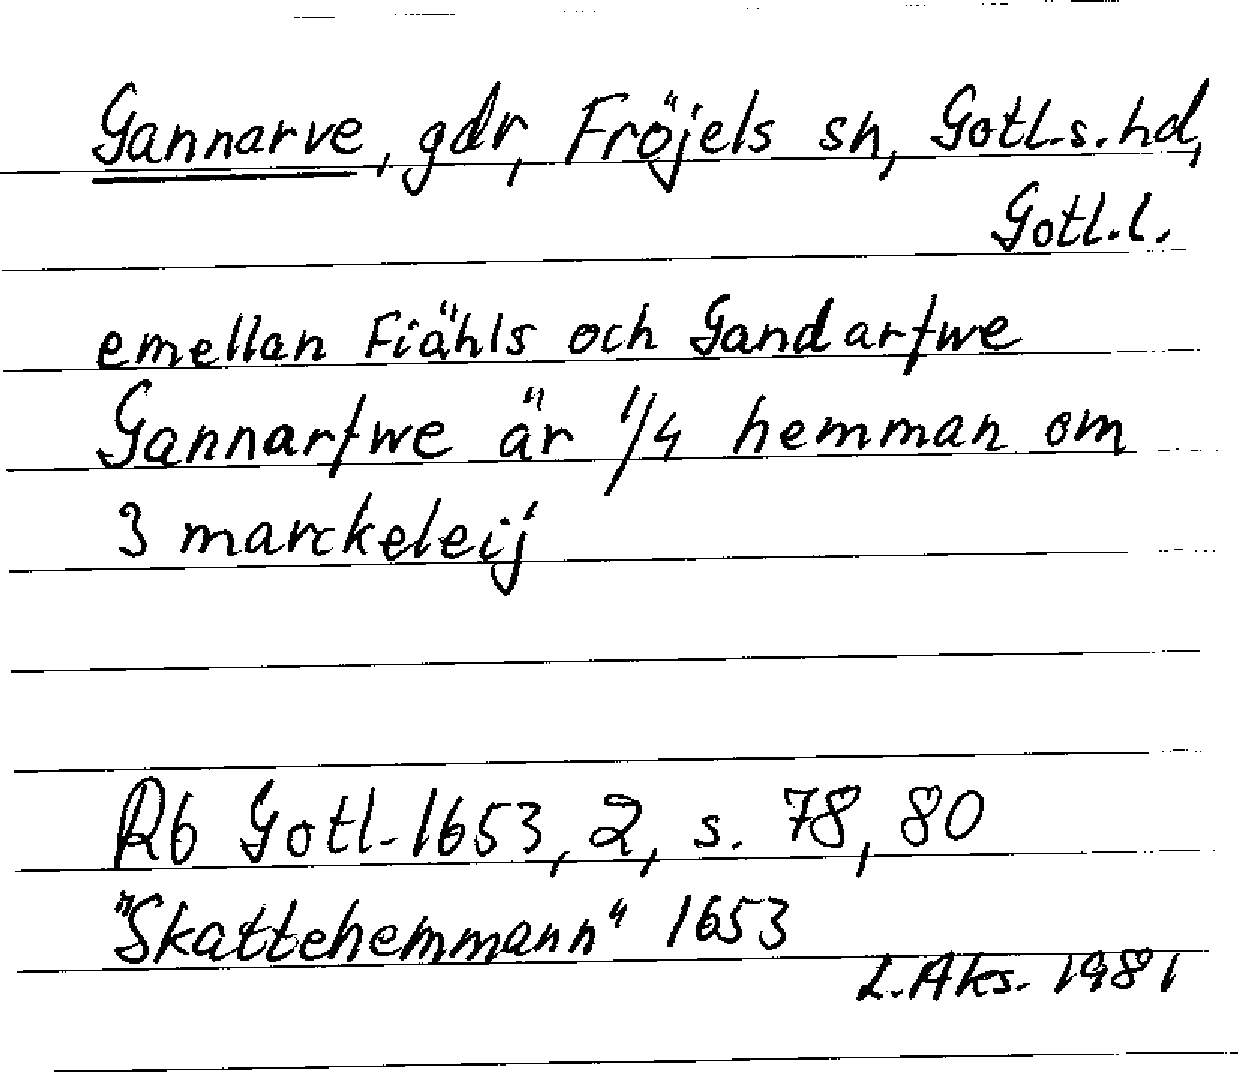 Gannarve, gdr, Fröjels sn, Gotl.s. hd,
Gotl.l.
emellan Fiähls och Gandarfwe
Gannarfwe är 1/4 hemman om
3 marckeleij
Rb Gotl. 1653, 2, s. 78, 80
"Skattehemmann" 1653
L. Aks. 1981